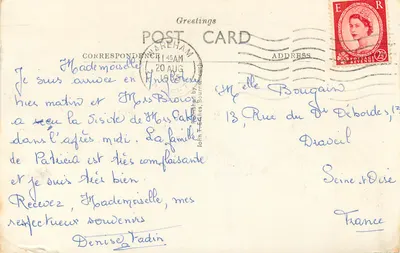 Greetings
POST CARD
CORRESPONDENCE
ADDRESS
WAREHAM
11 45AM
20 AUG
E R
Mademoiselle,
Je suis arrivée en Angleterre
hier matin et Mrs
a reçu la visite de Mrs
dans l'après midi. La famille
de Patricia est très complaisante
et je suis très bien.
Recevez, Mademoiselle, mes
respectueux souvenirs
Denise Vadin
Melle Bougain
13, Rue du Dr Débordes, 13
Draveil
Seine et Oise
France